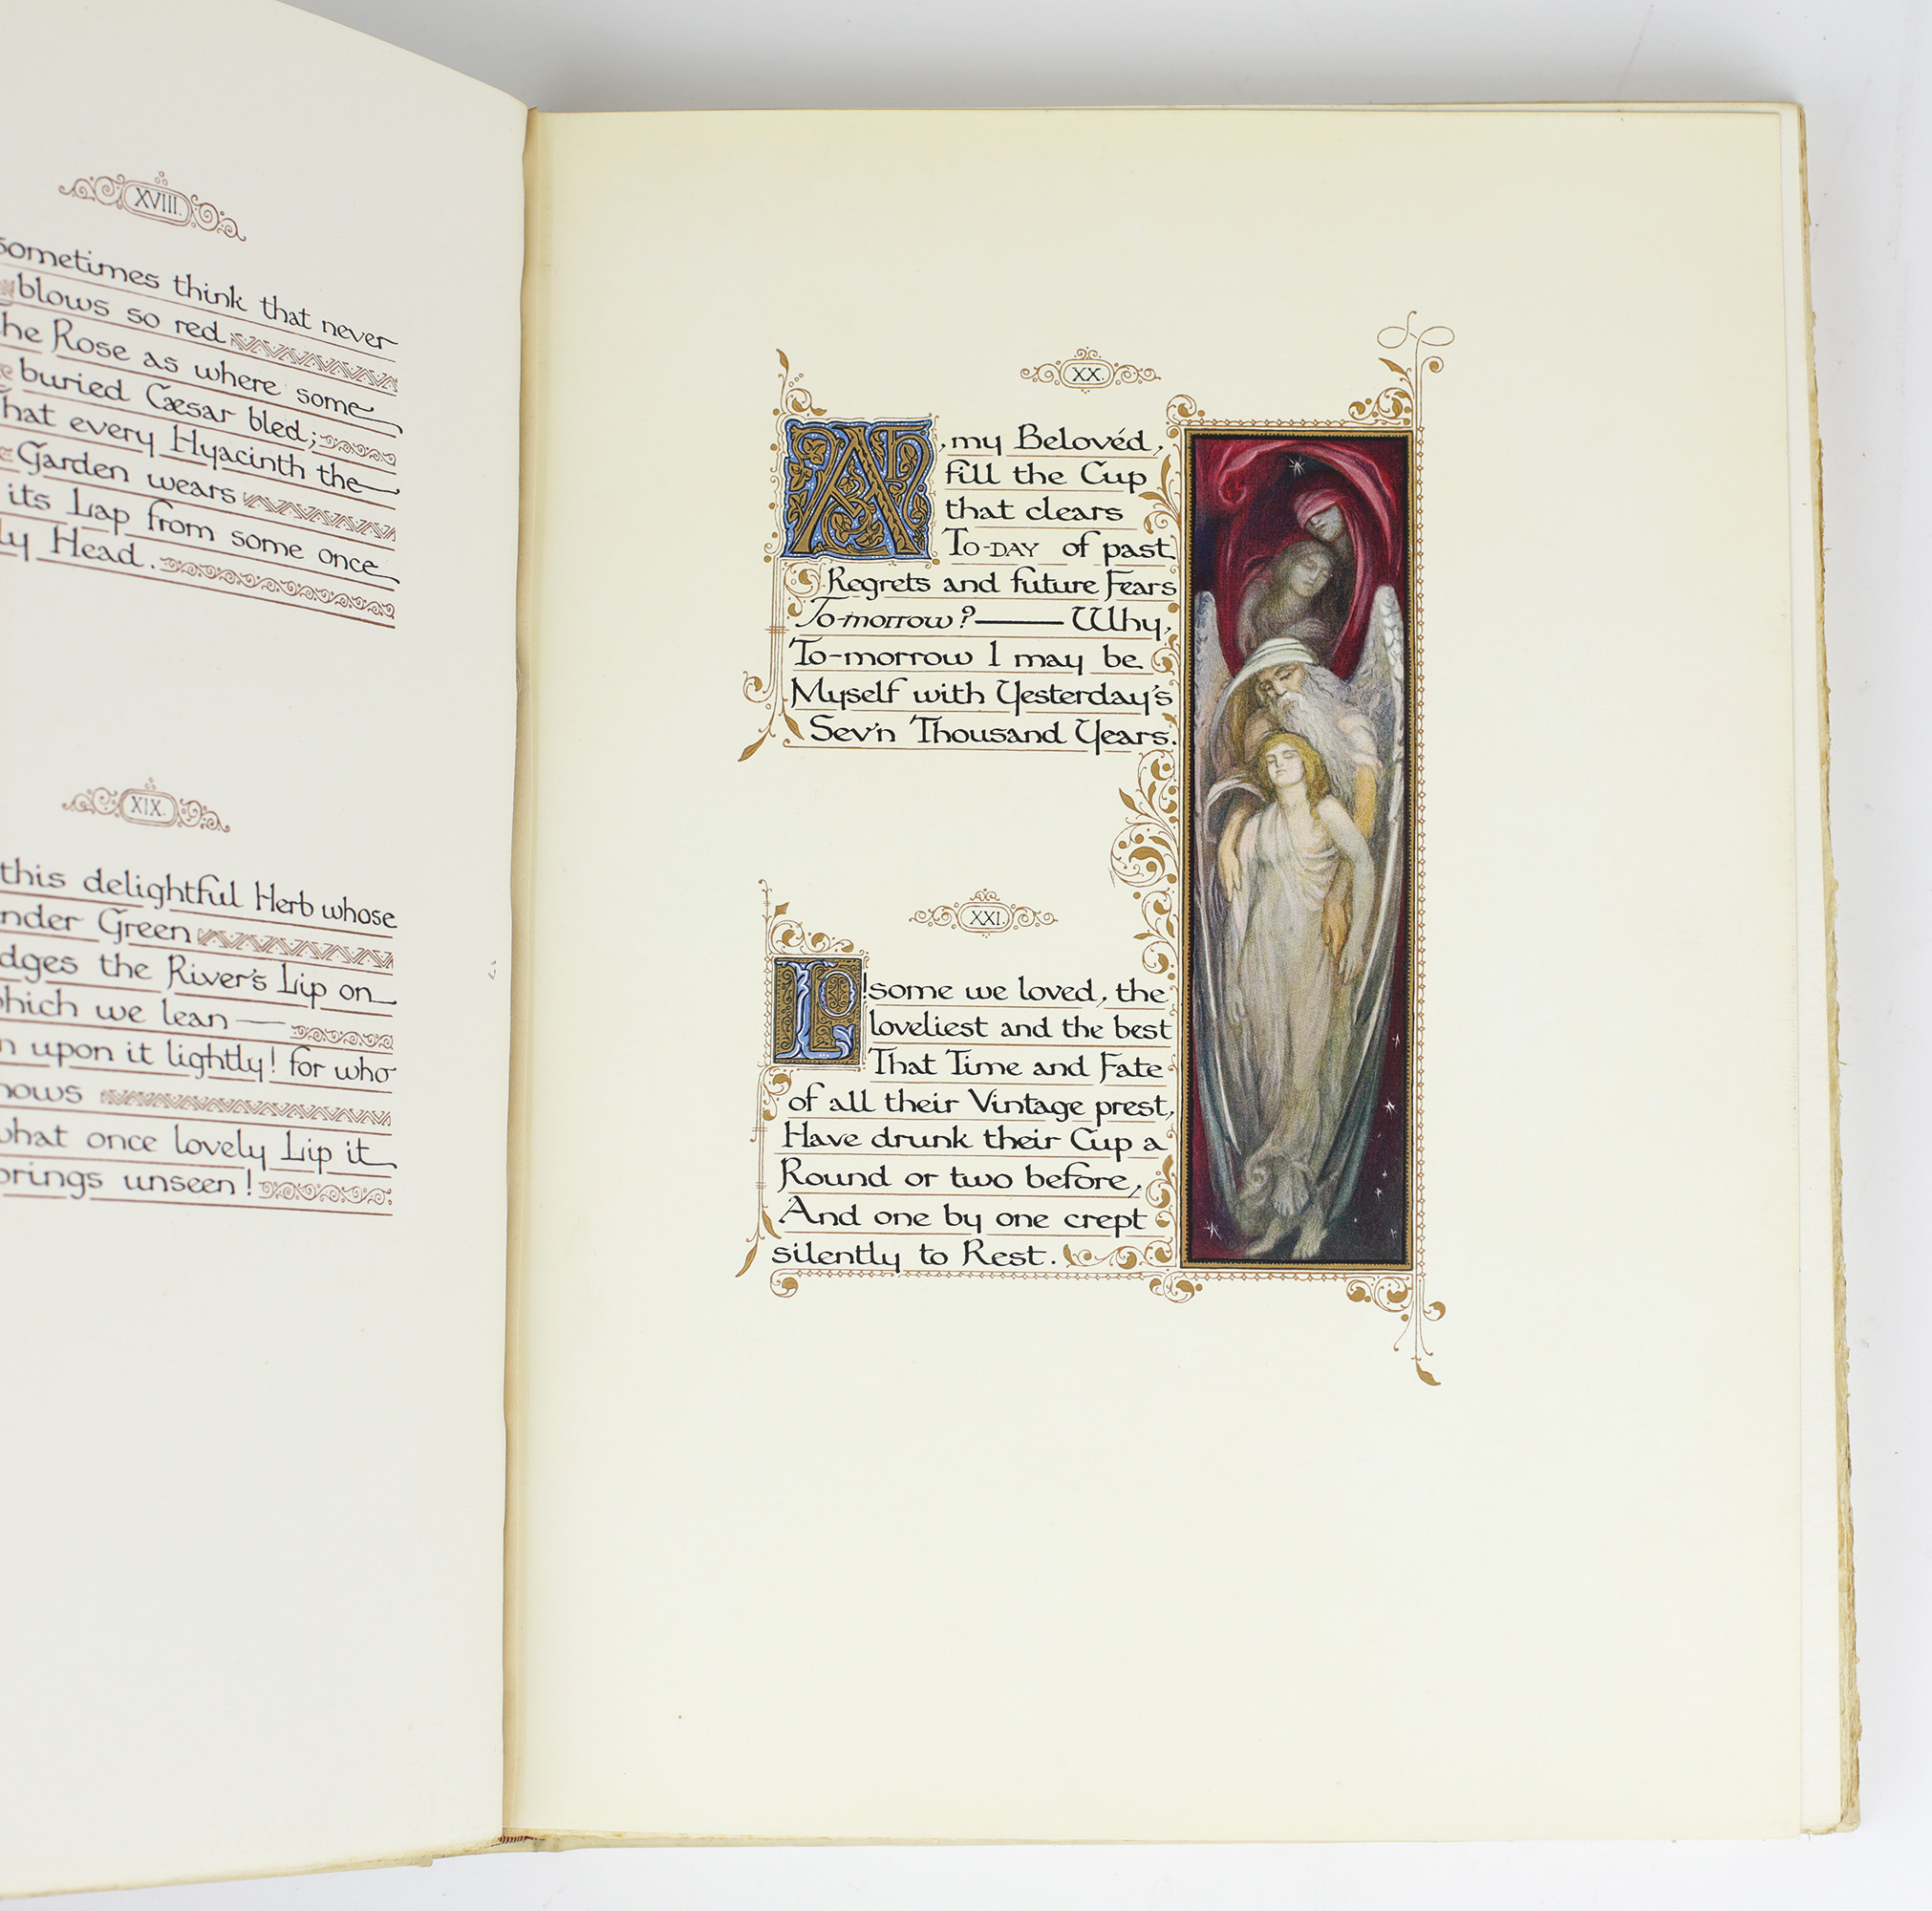 XVIII.
sometimes think that never
blows so red
The Rose as where some
buried Cæsar bled;
That every Hyacinth the
Garden wears
its Lap from some once
Head.
XIX.
this delightful Herb whose
Green
the River's Lip on
which we lean —
upon it lightly! for who
knows
what once lovely Lip it
springs unseen!
XX.
AH, my Belovéd,
fill the Cup
that clears
TO-DAY of past
Regrets and future Fears
To-morrow? — Why,
To-morrow I may be
Myself with Yesterday's
Sev'n Thousand Years.
XXI.
LO! some we loved, the
loveliest and the best
That Time and Fate
of all their Vintage prest,
Have drunk their Cup a
Round or two before,
And one by one crept
silently to Rest.